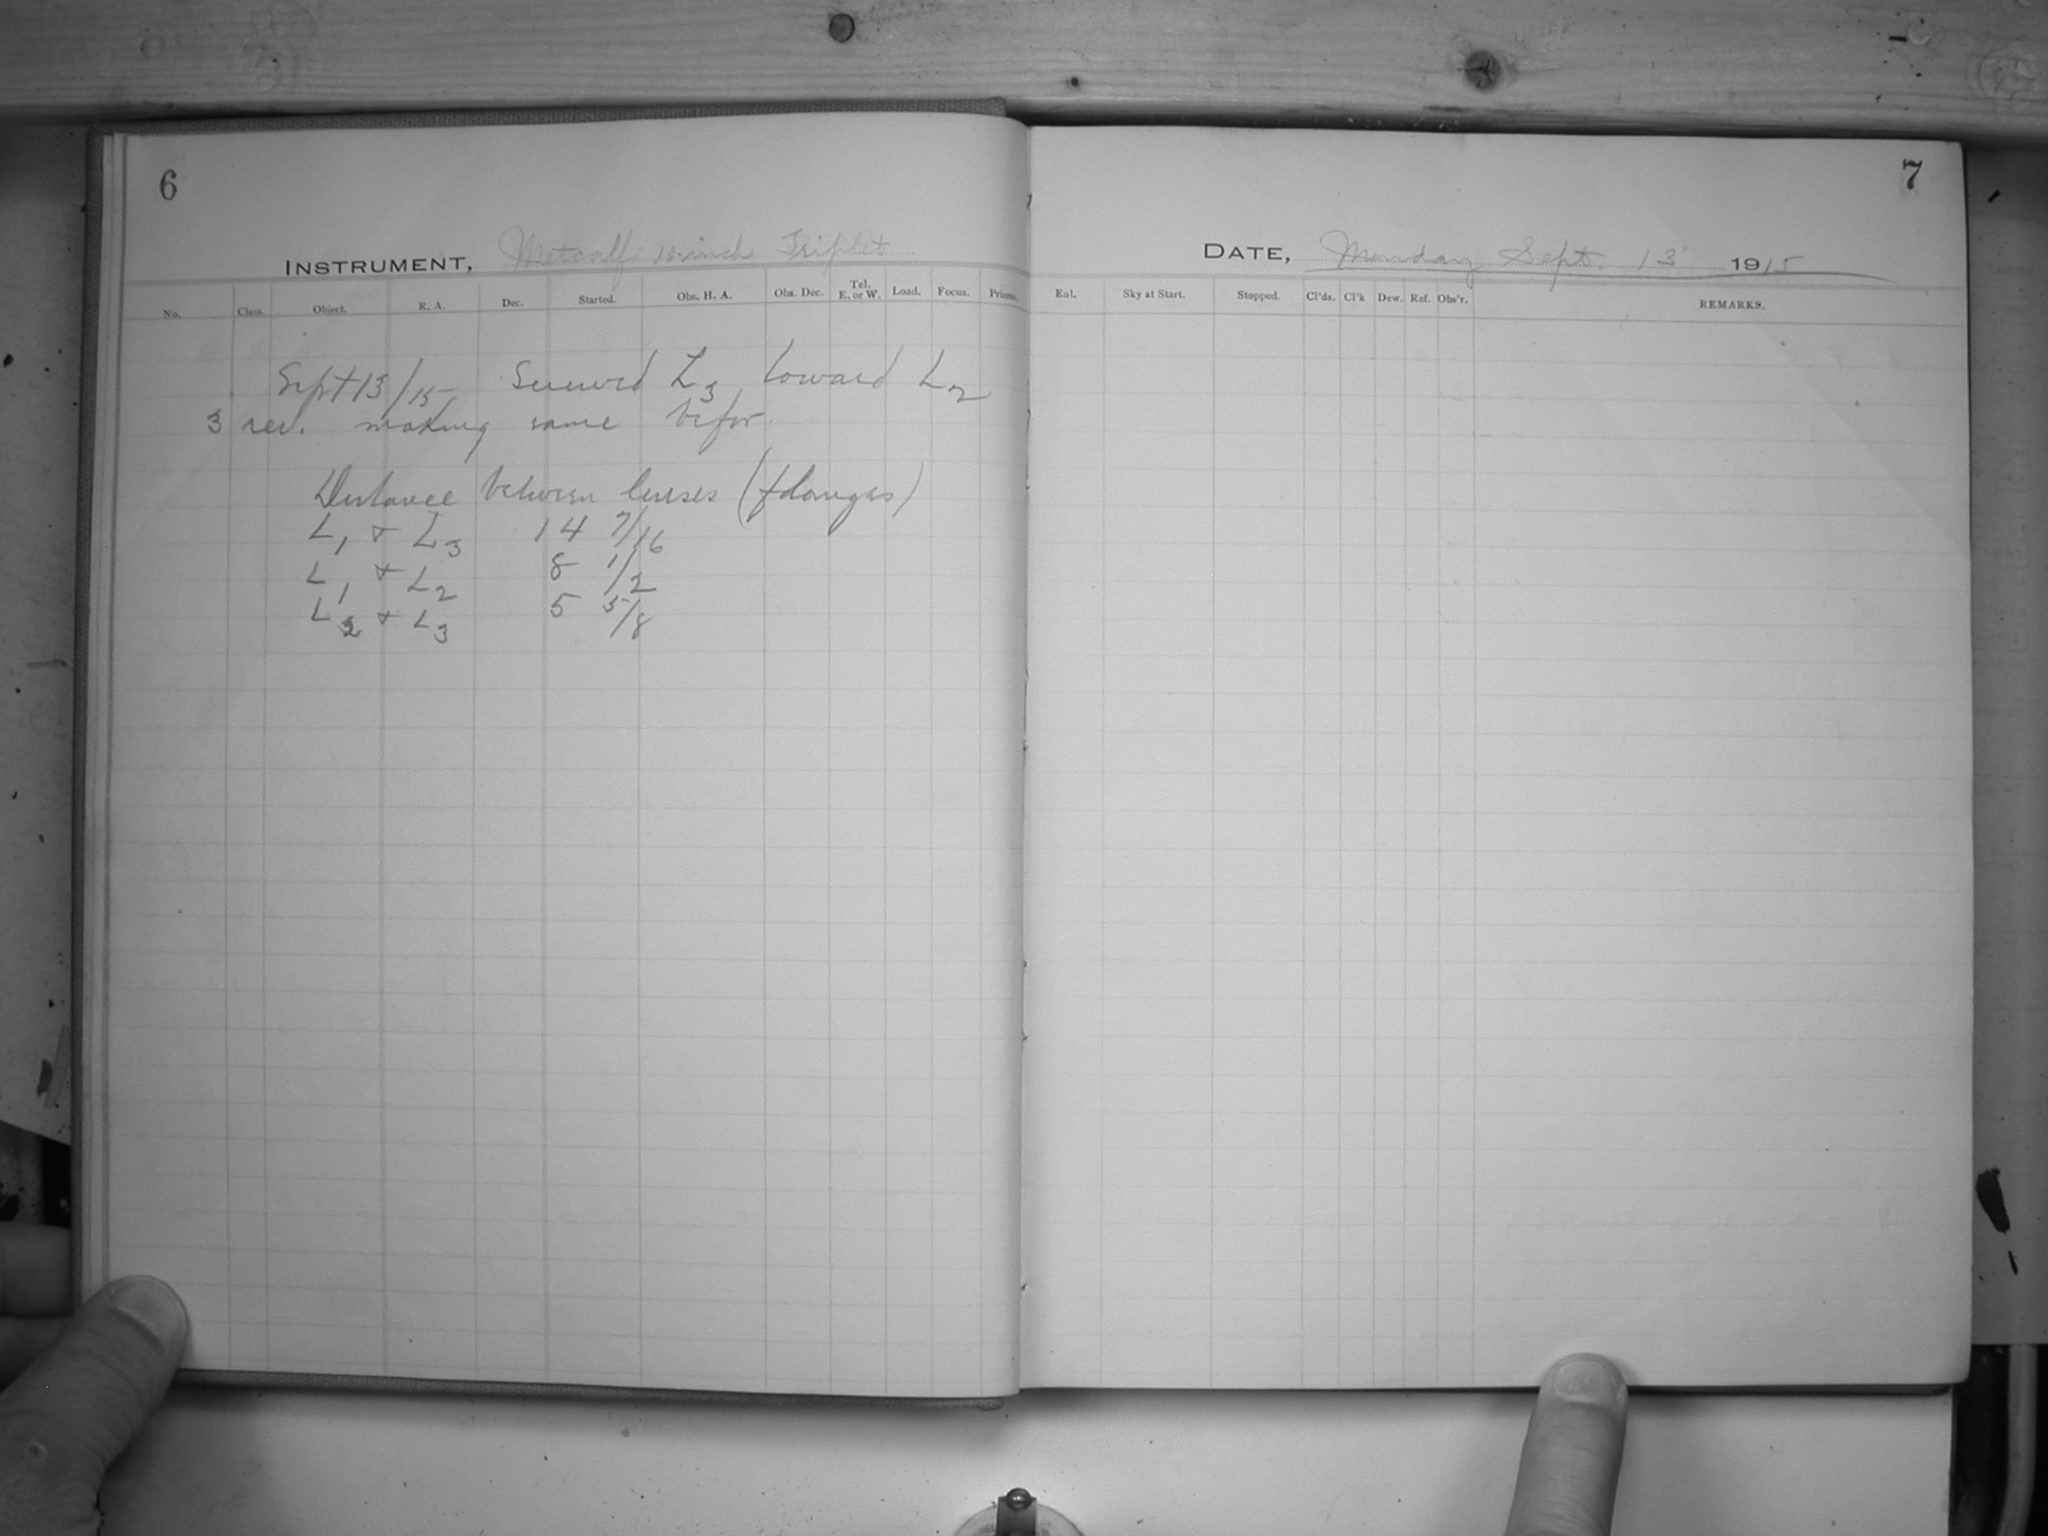 6
INSTRUMENT, Metcalf 10-inch Triplet
No. Class. Object. R. A. Dec. Started. Obs. H. A. Obs. Dec. Tel. E. or W. Load. Focus. Prisms.
Sept 13/15 Screwed L3 toward L2
3 rev. making same befor.
Distance between lenses (flanges)
L1 + L3 14 7/16
L1 + L2 8 1/2
L2 + L3 5 5/8
7
DATE, Monday Sept. 13 1915
Eal. Sky at Start. Stopped. Cl'ds. Cl'k Dew. Ref. Obs'r. REMARKS.